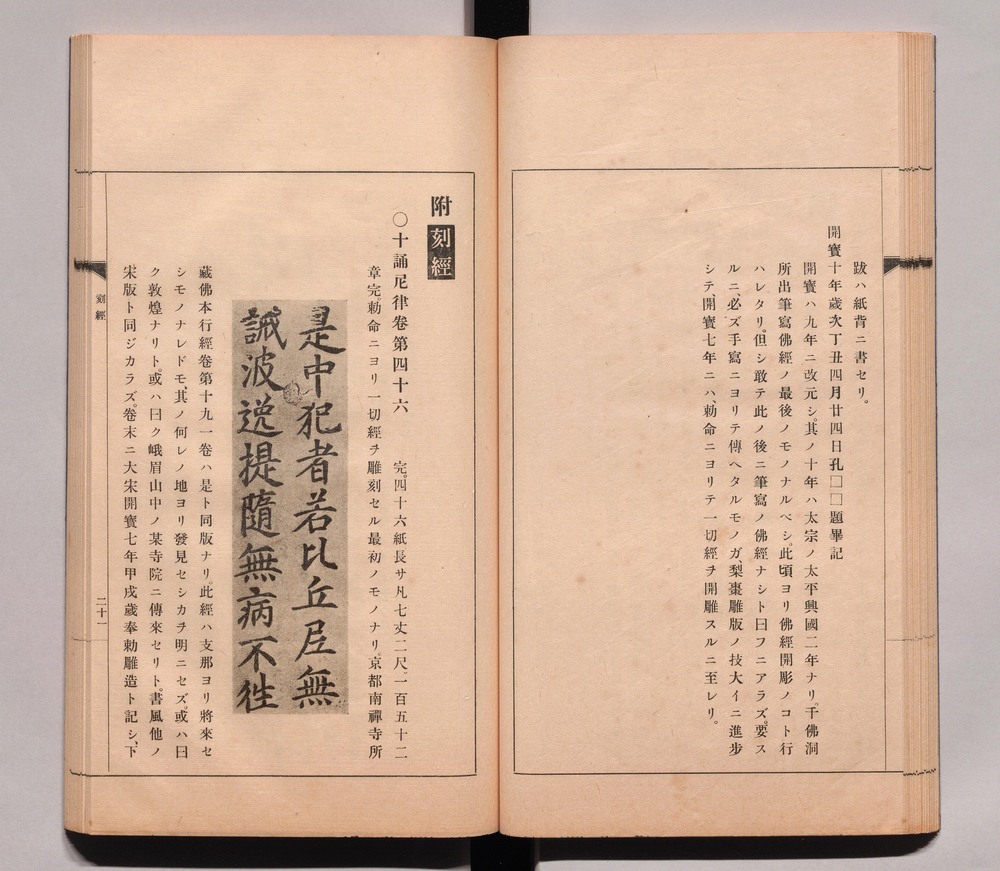 跋ハ紙背ニ書セリ。
開寶十年歲次丁丑四月廿四日孔□□題畢記
開寶ハ九年ニ改元シ、其ノ十年ハ太宗ノ太平興國二年ナリ。千佛洞
所出筆寫佛經ノ最後ノモノナルベシ。此頃ヨリ佛經開彫ノコト行
ハレタリ。但シ敢テ此ノ後ニ筆寫ノ佛經ナシト曰フニアラズ。要ス
ルニ、必ズ手寫ニヨリテ傳ヘタルモノガ、梨棗雕版ノ技大イニ進步
シテ、開寶七年ニハ、勅命ニヨリテ一切經ヲ開雕スルニ至レリ。
附刻經
〇十誦尼律卷第四十六 完。四十六紙長サ凡七丈二尺。一百五十二
章完。勅命ニヨリ一切經ヲ雕刻セル最初ノモノナリ。京都南禪寺所
是中犯者若比丘尼無
誡波逆提隨無病不徃
藏佛本行經卷第十九一卷ハ是ト同版ナリ。此經ハ支那ヨリ將來セ
シモノナレドモ、其ノ何レノ地ヨリ發見セシカヲ明ニセズ。或ハ曰
ク敦煌ナリト。或ハ曰ク峨眉山中ノ某寺院ニ傳來セリト。書風他ノ
宋版ト同ジカラズ。卷末ニ大宋開寶七年甲戌歲奉勅雕造ト記シ、下
刻經
二十一